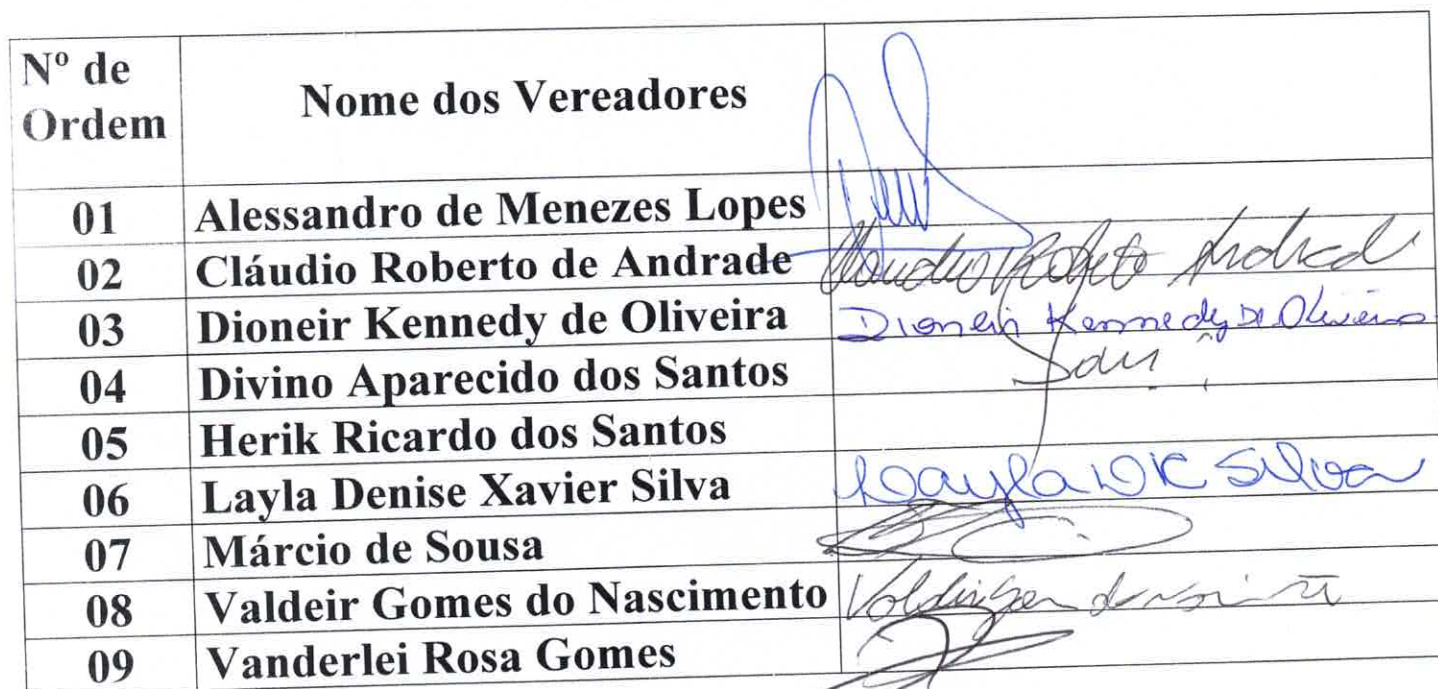 Nº de
Ordem
Nome dos Vereadores
01 Alessandro de Menezes Lopes
02 Cláudio Roberto de Andrade Claudio Roberto Andrade
03 Dioneir Kennedy de Oliveira Dioneir Kennedy De Oliveira
04 Divino Aparecido dos Santos
05 Herik Ricardo dos Santos
06 Layla Denise Xavier Silva Layla Silva
07 Márcio de Sousa
08 Valdeir Gomes do Nascimento
09 Vanderlei Rosa Gomes